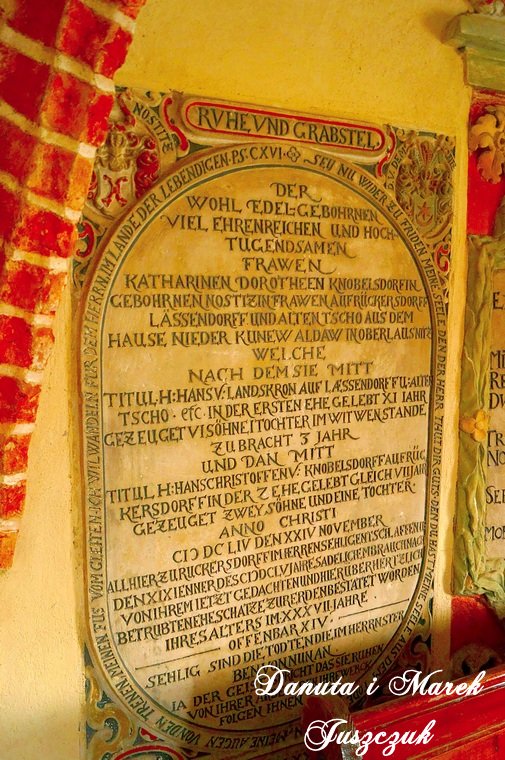 RVHE VND GRABSTEL
NOSTITZE
DER
WOHL EDEL-GEBOHRNEN
VIEL EHRENREICHEN UND HOCH
TUGENDSAMEN
FRAWEN
KATHARINEN DOROTHEEN KNOBELSDORFIN
GEBOHRNEN NOSTITZIN FRAWEN AUF RÜCKERSDORFF
LÄSSENDORFF UND ALTEN TSCHO AUS DEM
HAUSE NIEDER KUNEWALDAW IN OBERLAUSNITZ
WELCHE
NACH DEM SIE MITT
TITUL H: HANS V: LANDSKRON AUF LÆSSENDORFF U: ALTEN
TSCHO. etc. IN DER ERSTEN EHE GELEBT XI JAHR
GEZEUGET VI SÖHNE I TOCHTER IM WITWENSTANDE
ZUBRACHT 3 JAHR
UND DAN MITT
TITUL H: HANS CHRISTOFFEN V: KNOBELSDORFF AUF RÜC
KERSDORFF IN DER 2 EHE GELEBT GLEICH VII JAHR
GEZEUGET ZWEY SÖHNE UND EINE TOCHTER.
ANNO CHRISTI
CIↃ DC LIV DEN XXIV NOVEMBER
ALLHIER ZU RÜCKERSDORFF IM HERREN SEHLIG ENTSCHLAFFEN
DEN XIX IENNER DES CIↃ DC LV JAHRES ADELICHEM BRAUCH NACH
VON IHREM IETZT GEDACHTEN UND HIERÜBER HERTZLICH
BETRUBTEN EHESCHATZE ZUR ERDEN BESTATET WORDEN
IHRES ALTERS IM XXXVII JAHRE.
OFFENBAR XIV.
SEHLIG SIND DIE TODTEN DIE IM HERREN STER
BEN VON NUN AN
JA DER GEIST
VON IHRER
FOLGEN IHNEN
VOM GLEITEN ICH WIL WANDELN FÜR DEM HERRN IM LANDE DER LEBENDIGEN PS CXVI
SEY NU WIDER ZU FRIDEN MEINE SEELE DEN DER HERR THUT DIR GUTS DEN DU HAST MEINE SEELE AUS
MEINE AUGEN VON DEN TRENEN MEINEN FUS
Danuta i Marek
Juszczuk